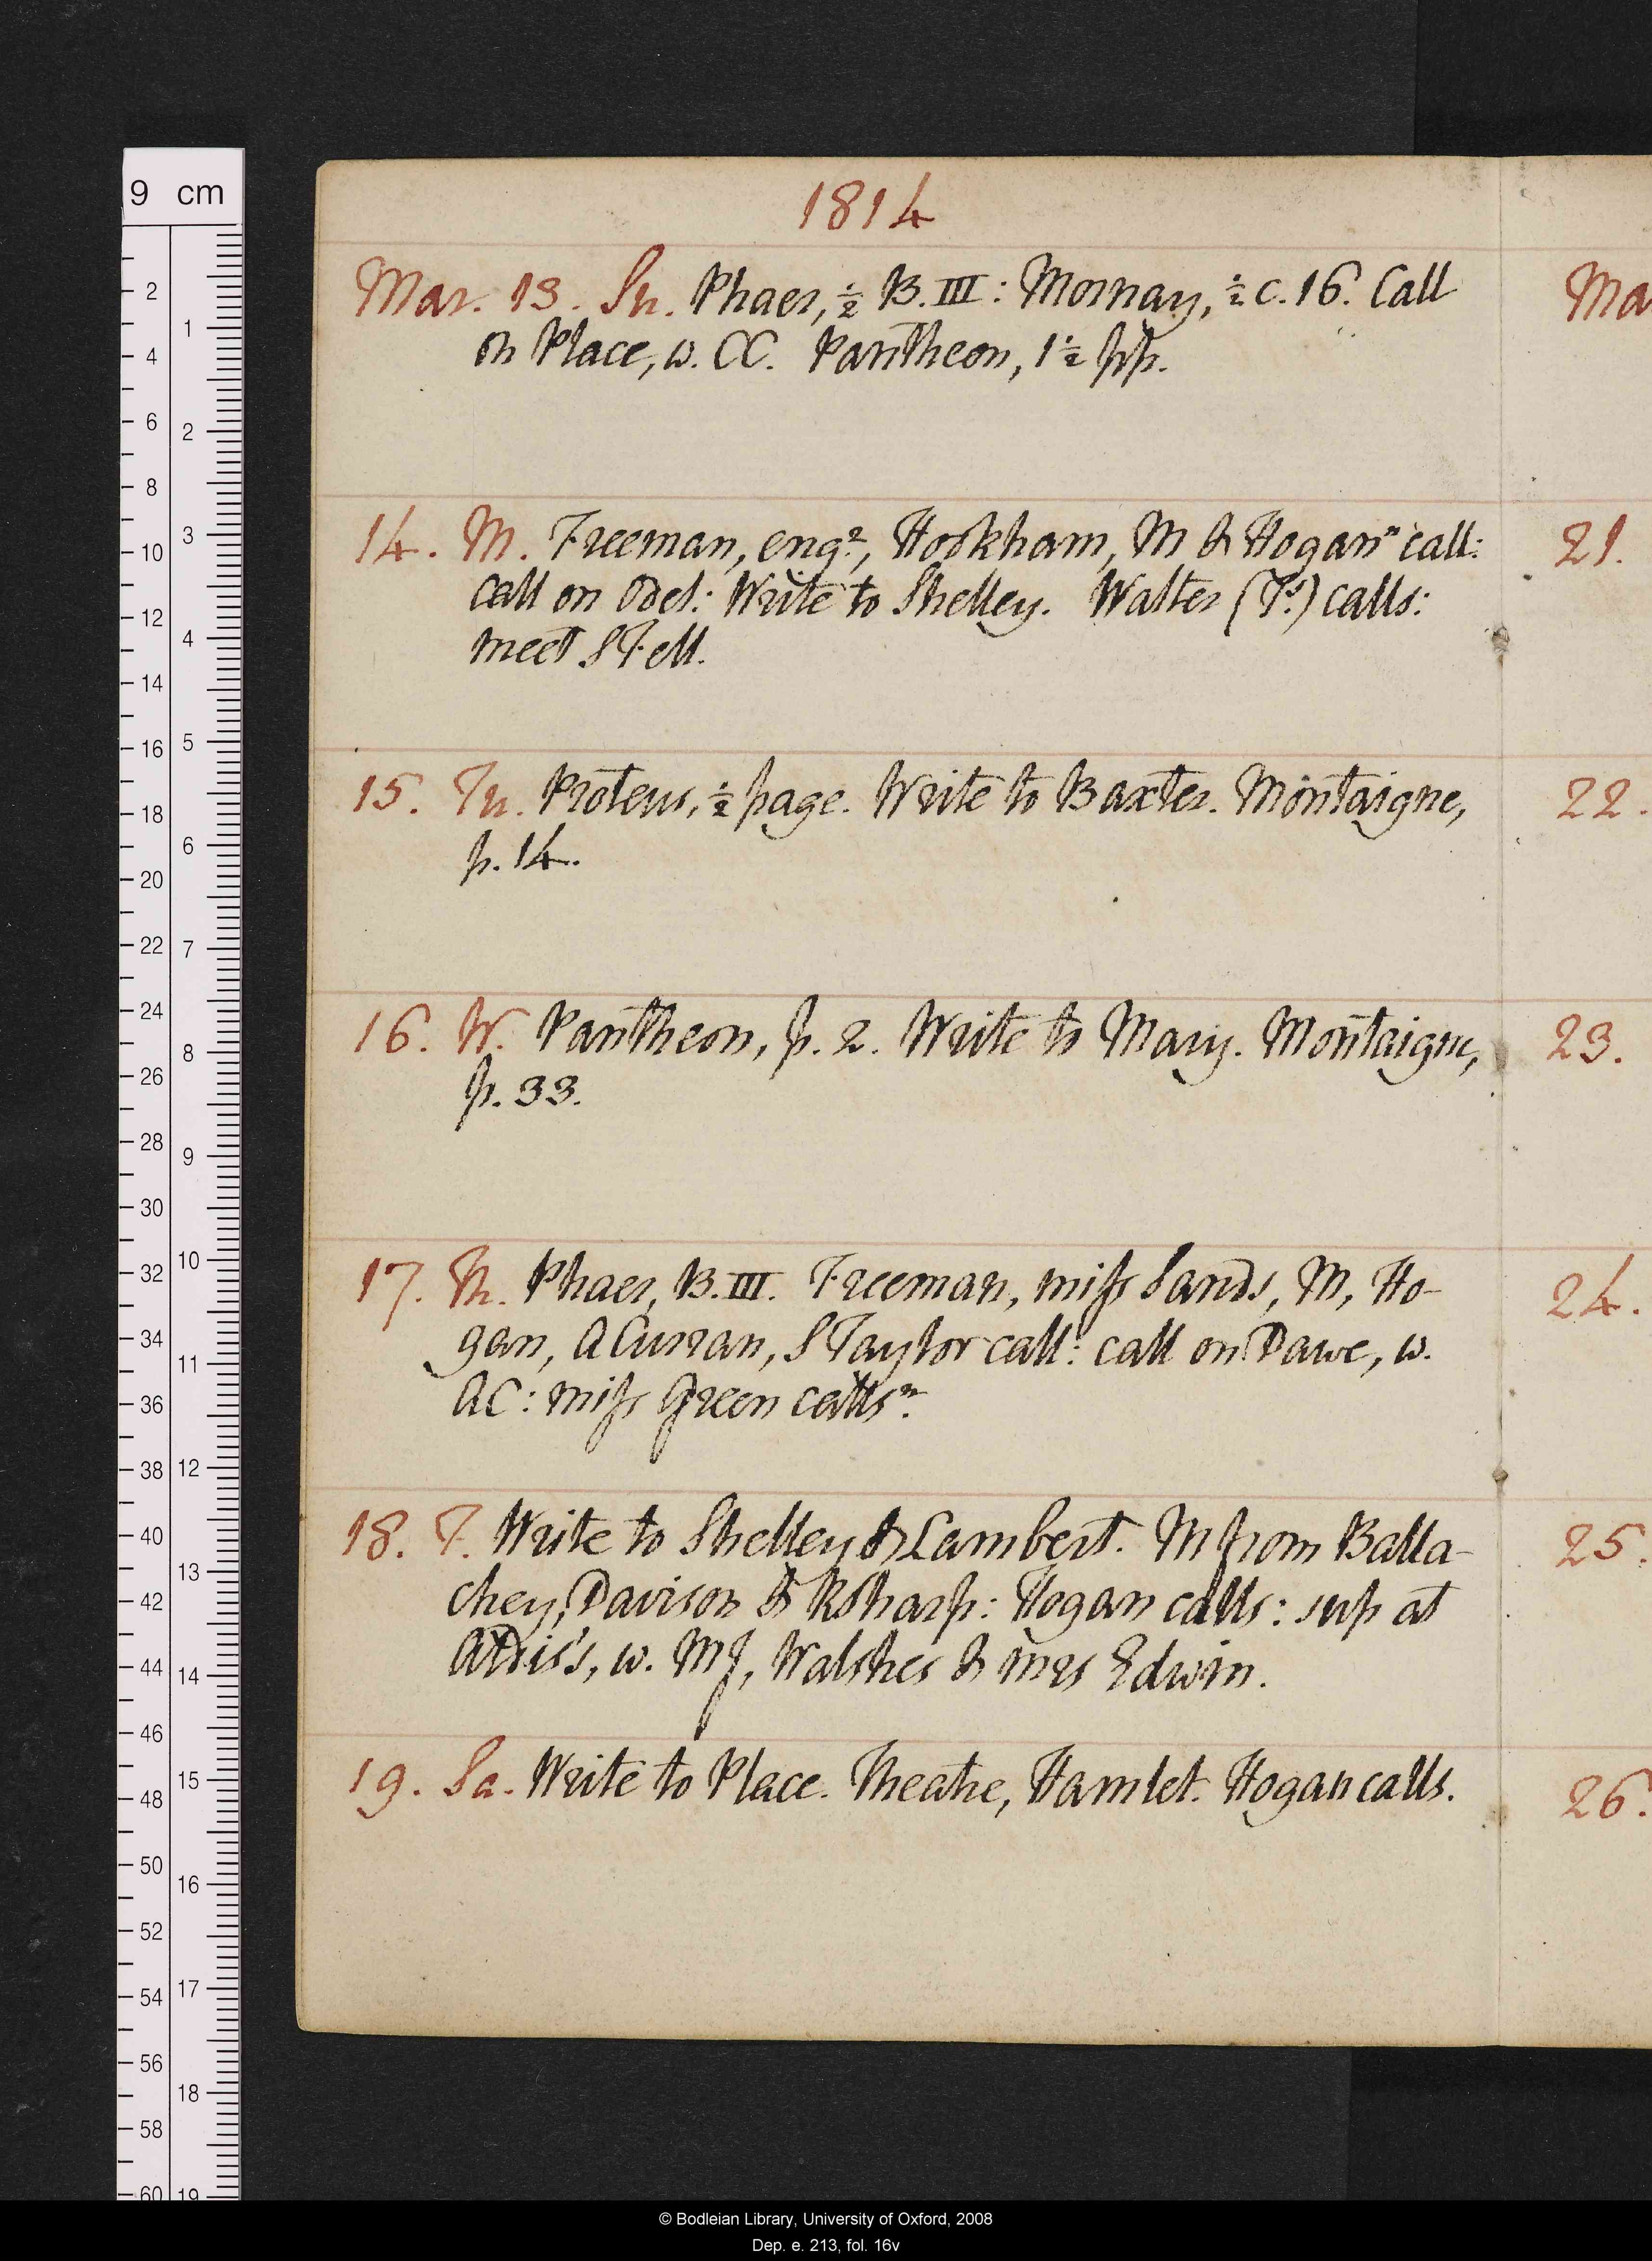 1814
Mar. 13. Su. Phaer, ½ B. III: Mornay, ½ c. 16. Call
on Place, w. CC. Pantheon, 1½ pp.
14. M. Freeman, engr, Hookham, M & Hogan n call:
call on Odel: Write to Shelley. Walter (Ts.) calls:
meet S Fell.
15. Tu. Proteus, ½ page. Write to Baxter. Montaigne,
p. 14.
16. W. Pantheon, p. 2. Write to Mary. Montaigne,
p. 33.
17. Th. Phaer, B. III. Freeman, miss Sands, M, Ho-
gan, A Curran, S Taylor call: call on Dawe, w.
AC: miss Green calls n.
18. F. Write to Shelley & Lambert. M from Balla-
chey, Davison & R Sharp: Hogan calls: sup at
Aldis's, w. MJ, Walshes & mrs Edwin.
19. Sa. Write to Place. Theatre, Hamlet. Hogan calls.
Ma
21.
22.
23.
24.
25.
26.
9 cm
2
4
6
8
10
12
14
16
18
20
22
24
26
28
30
32
34
36
38
40
42
44
46
48
50
52
54
56
58
60
1
2
3
4
5
6
7
8
9
10
11
12
13
14
15
16
17
18
19
© Bodleian Library, University of Oxford, 2008
Dep. e. 213, fol. 16v